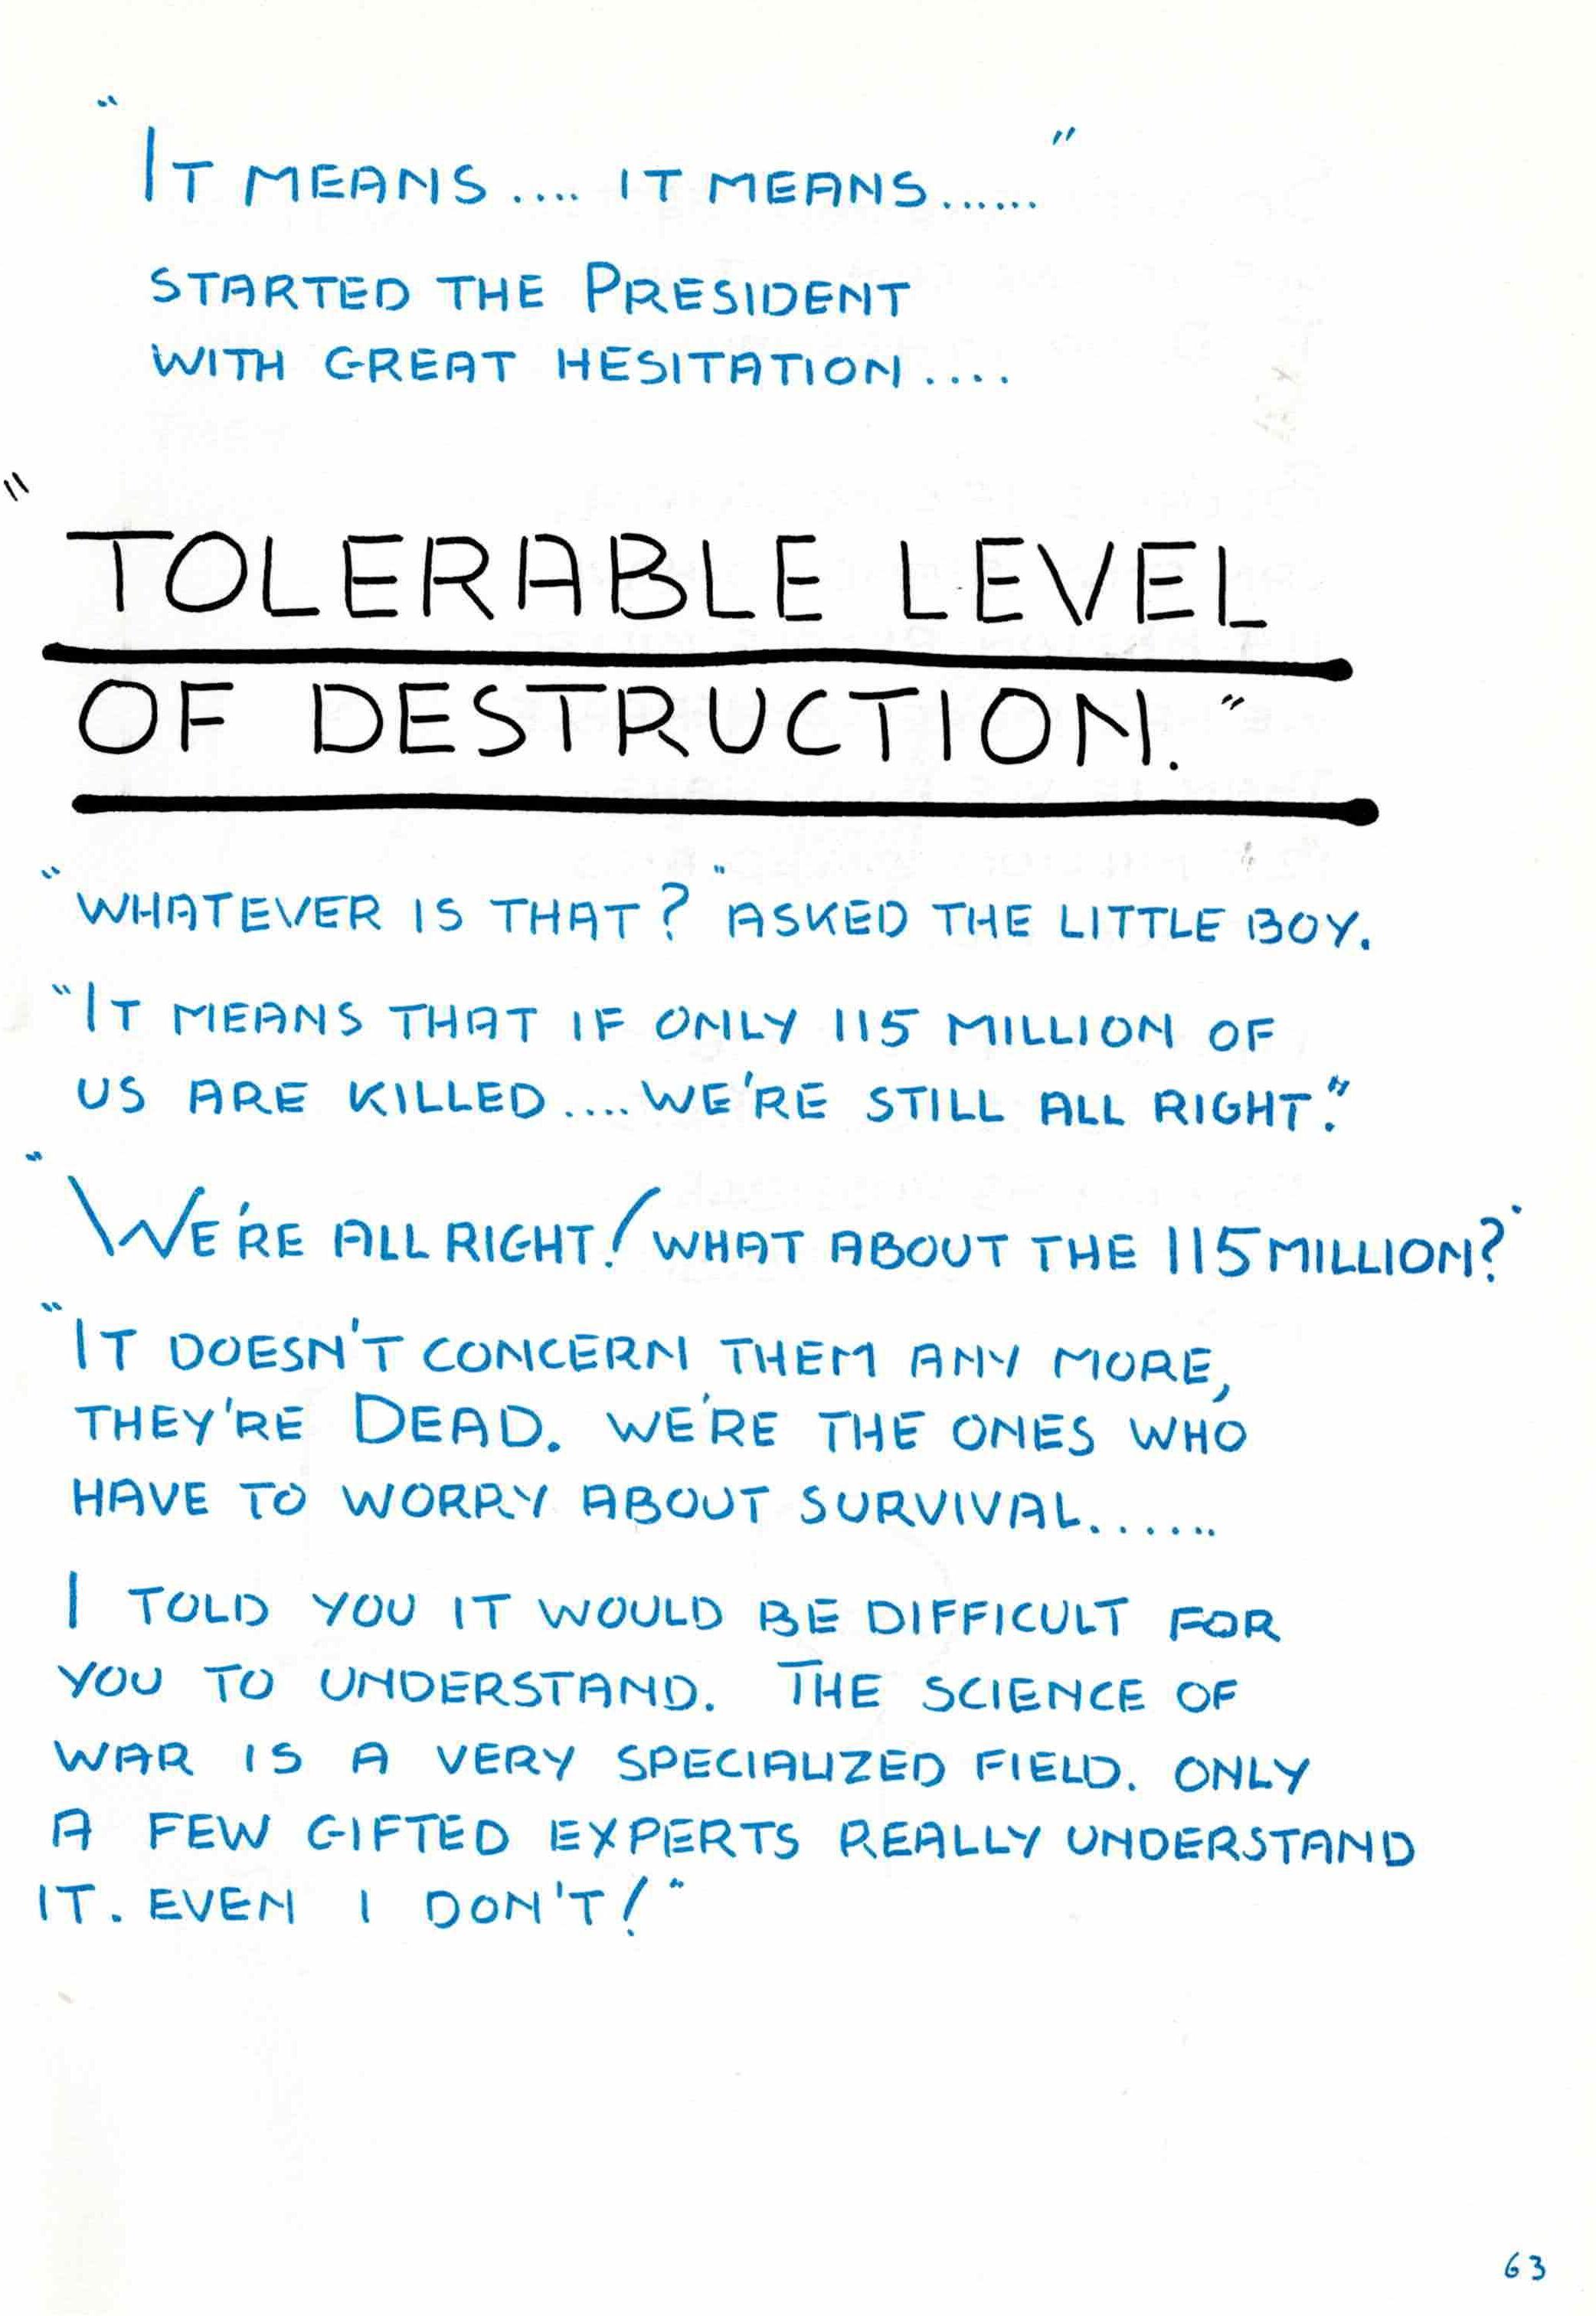 "IT MEANS.... IT MEANS......"
STARTED THE PRESIDENT
WITH GREAT HESITATION....
"TOLERABLE LEVEL
OF DESTRUCTION."
"WHATEVER IS THAT?" ASKED THE LITTLE BOY.
"IT MEANS THAT IF ONLY 115 MILLION OF
US ARE KILLED.... WE'RE STILL ALL RIGHT."
"WE'RE ALL RIGHT! WHAT ABOUT THE 115 MILLION?"
"IT DOESN'T CONCERN THEM ANY MORE,
THEY'RE DEAD. WE'RE THE ONES WHO
HAVE TO WORRY ABOUT SURVIVAL......
I TOLD YOU IT WOULD BE DIFFICULT FOR
YOU TO UNDERSTAND. THE SCIENCE OF
WAR IS A VERY SPECIALIZED FIELD. ONLY
A FEW GIFTED EXPERTS REALLY UNDERSTAND
IT. EVEN I DON'T!"
63